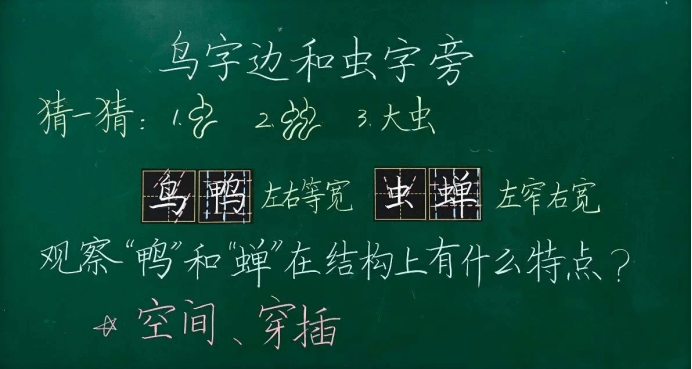 鸟字边和虫字旁
猜一猜：1. 2. 3.大虫
鸟鸭 左右等宽 虫蝉 左窄右宽
观察“鸭”和“蝉”在结构上有什么特点？
☆空间、穿插